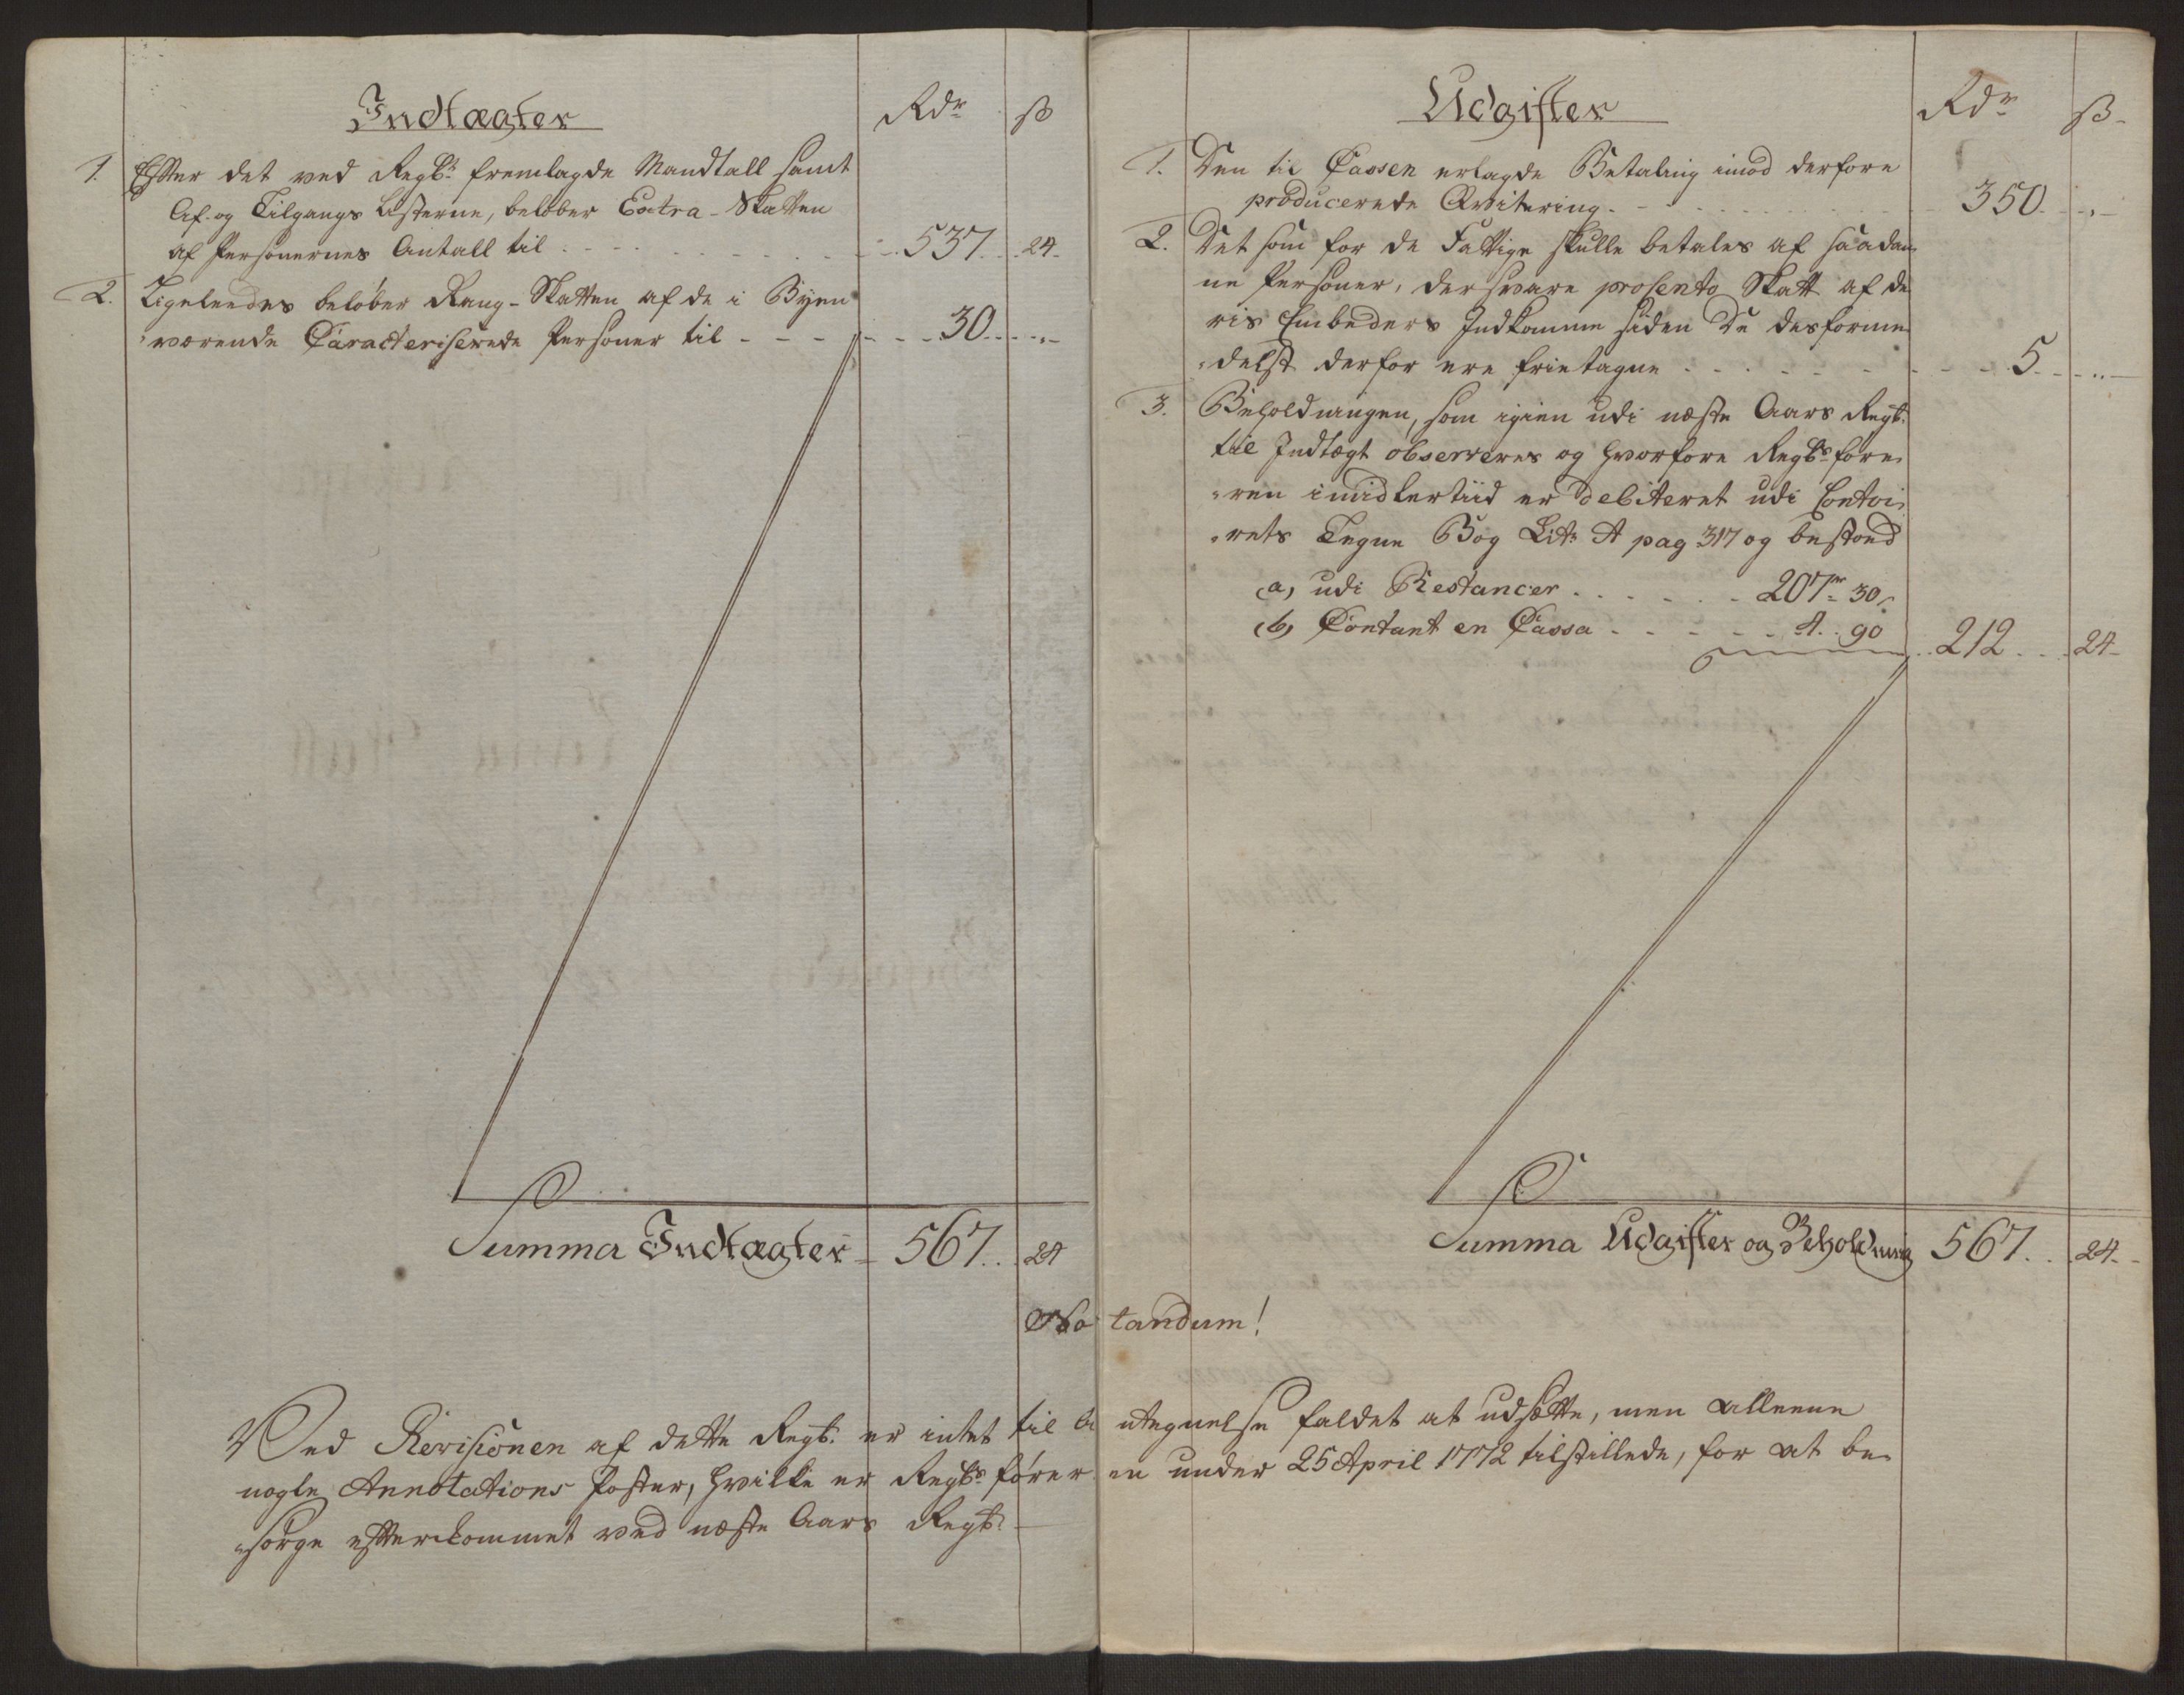 Indtægter Rdr ß
1. Efter det ved Regb: fremlagde Mandtall samt
Af- og Tilgangs Listerne, beløber Extra-Skatten
af Personernes Antall til . . . . 537. . 24.
2. Ligeleedes beløber Rang-Skatten af de i Byen
værende Caracteriserede Personer til - - - 30. . „ -
Summa Indtægter - 567. . 24
Udgifter Rdr ß.
1. Den til Cassen erlagde Betaling imod derfore
producerede Qvitering. - - - 350. . „ -
2. Det som for de Fattige skulle betales af saadan-
ne Personer, der svare prosento Skatt af de
ris Embeders Indkomme siden De desforme
„delst derfor ere frietagne - - - 5. - . „ -
3. Beholdningen, som igien udi næste Aars Regb:
til Indtægt observeres og hvorfore Regbs føre„
„ren imidlertiid er debiteret udi Contoi„
„rets Tegne Bog Litr: A pag 317 og bestoed
(a, udi Restancer . . . . . . 207rr 30ß
(b, Contant en Cassa . . . . 4. . 90
212. . . 24-
Summa Udgifter og Beholdning 567. . 24. -
Notandum!
Ved Revisionen af dette Regb: er intet til Antegnelse faldet at udsætte, men alleene
nogle Annotations Poster, hvilke er Regbs fører en under 25 April 1772 tilstillede, for at be„
„sørge efterkommet ved næste Aars Regb: -